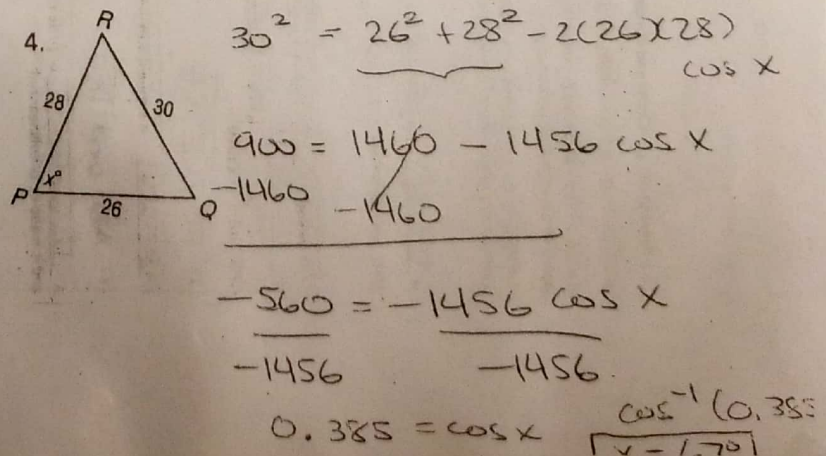 4.
R
28
30
x°
P
26
Q
30² = 26² + 28² - 2(26)(28)
cos x
900 = 1460 - 1456 cos x
-1460 -1460
-560 = -1456 cos x
-1456 -1456
0.385 = cos x
cos⁻¹(0.385